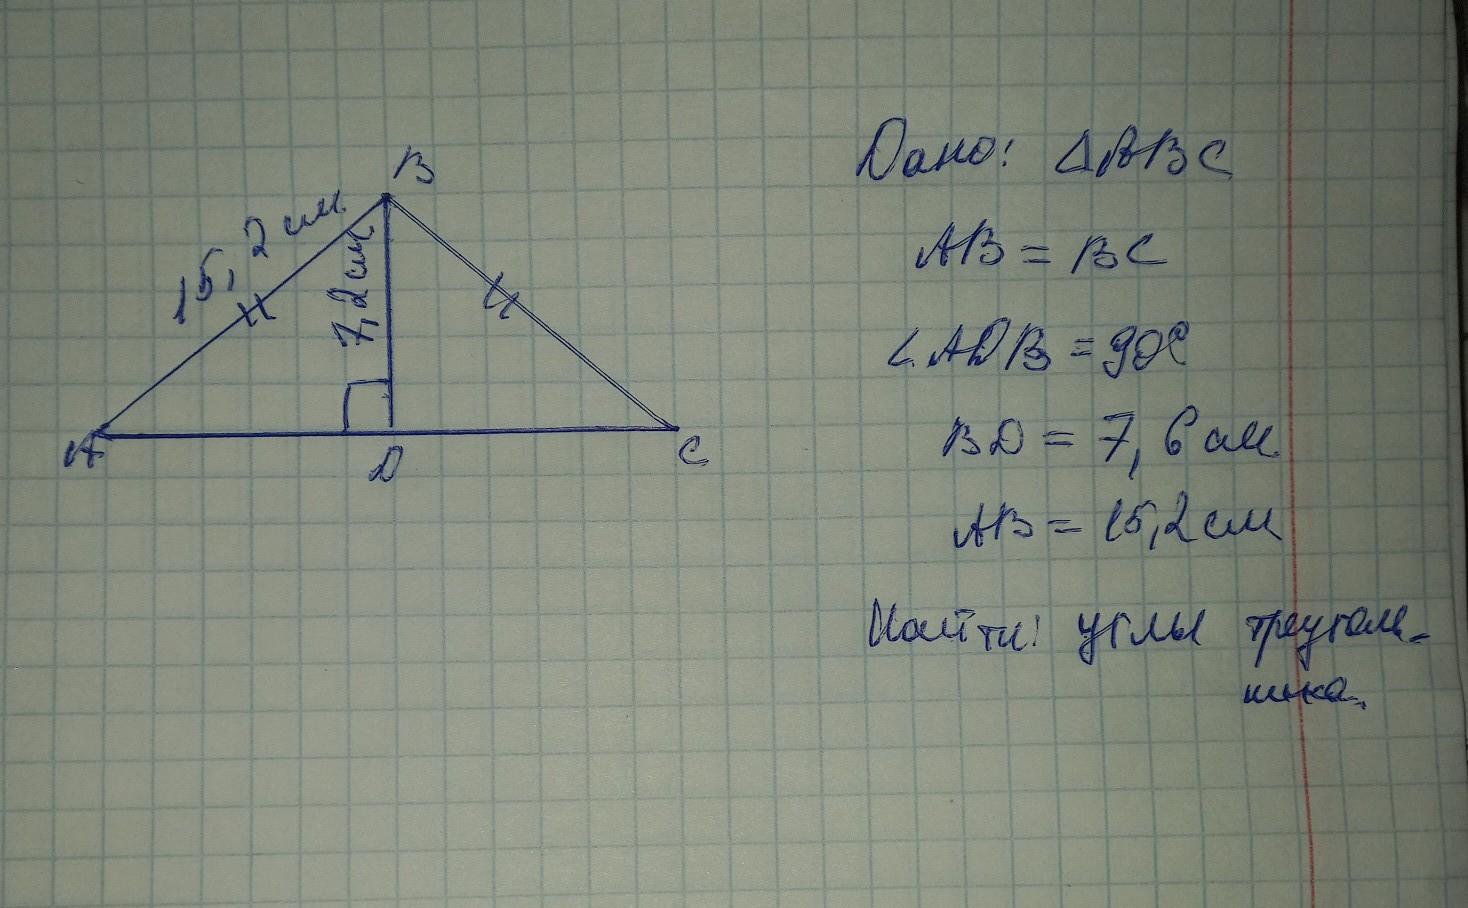 B
15,2 см
7,2 см
A
D
C
Дано: △ABC
AB = BC
∠ADB = 90°
BD = 7,6 см
AB = 15,2 см
Найти: углы треуголь-
ника.